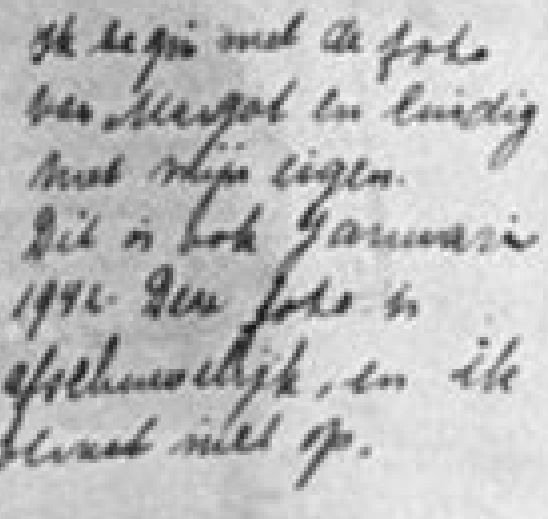 Ik begin met de foto
van Margot en eindig
met mijn eigen.
Dit is ook Januari
1942. Deze foto is
afschuwelijk, en ik
niet op.